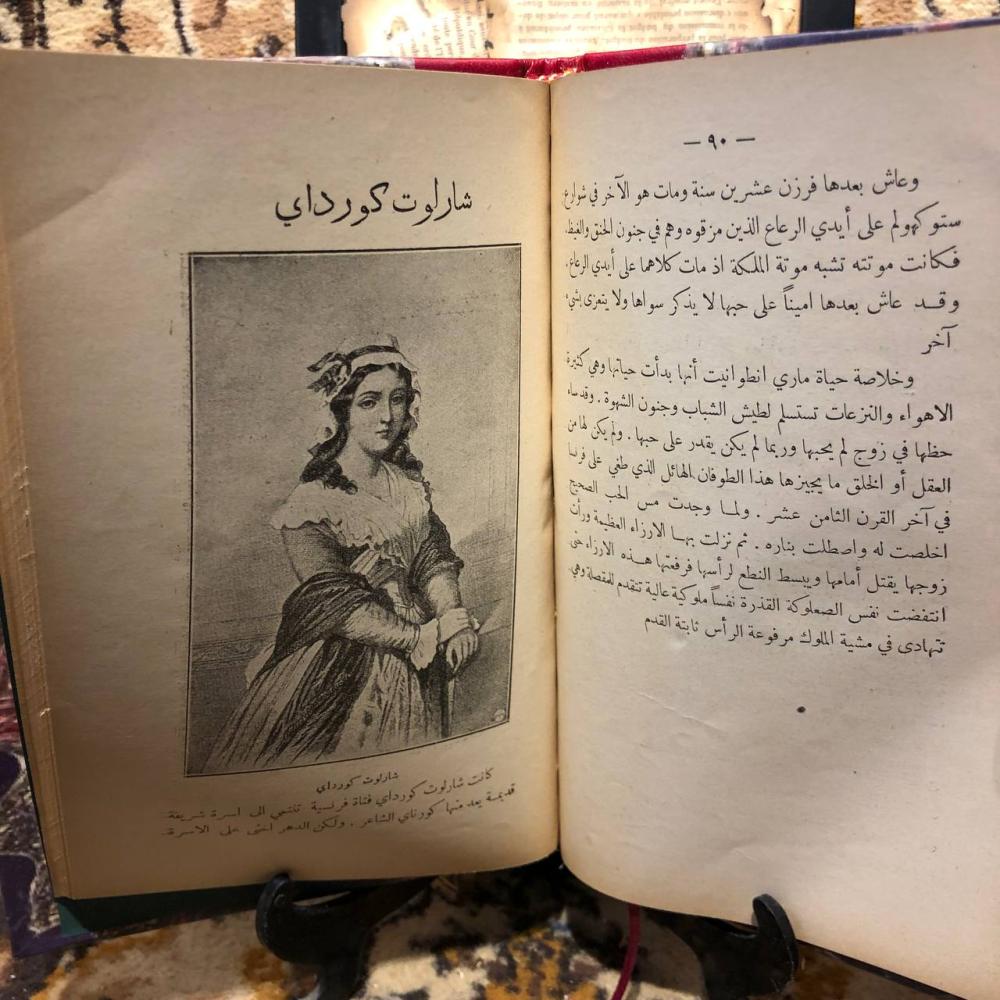 — ٩٠ —
وعاش بعدها فرزن عشرين سنة ومات هو الآخر في شوارع
ستوكهولم على أيدي الرعاع الذين مزقوه وهم في جنون الحنق والغيظ.
فكانت موتته تشبه موتة الملكة اذ مات كلاهما على أيدي الرعاع.
وقد عاش بعدها اميناً على حبها لا يذكر سواها ولا يتعزى بشيء
آخر
وخلاصة حياة ماري انطوانيت أنها بدأت حياتها وهي كثيرة
الاهواء والنزعات تستسلم لطيش الشباب وجنون الشهوة. وقد ساء
حظها في زوج لم يحبها وربما لم يكن يقدر على حبها. ولم يكن لها من
العقل أو الخلق ما يجيزها هذا الطوفان الهائل الذي طغي على فرنسا
في آخر القرن الثامن عشر. ولما وجدت مس الحب الصحيح
اخلصت له واصطلت بناره. ثم نزلت بها الارزاء العظيمة ورأت
زوجها يقتل أمامها ويبسط النطع لرأسها فرفعتها هذه الارزاء حتى
انتفضت نفس الصعلوكة القذرة نفساً ملوكية عالية تتقدم للمقصلة وهي
تتهادى في مشية الملوك مرفوعة الرأس ثابتة القدم
شارلوت كورداي
شارلوت كورداي
كانت شارلوت كورداي فتاة فرنسية تنتمي الى اسرة شريفة
قديمة يعد منها كورناي الشاعر. ولكن الدهر اخنى على الاسرة